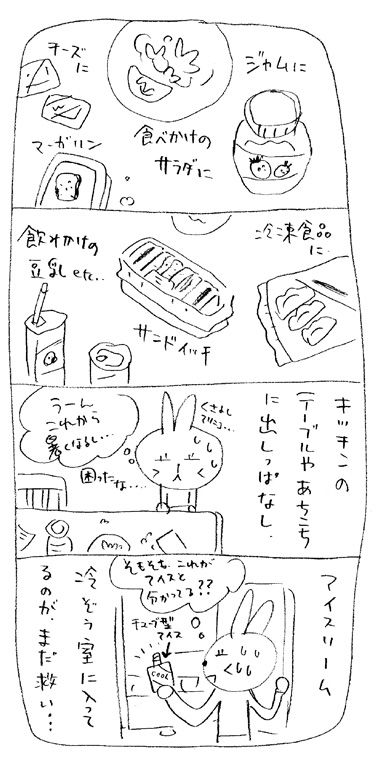 チーズ
に
ジャムに
食べかけの
サラダに
マーガリン
飲みかけの
豆乳etc..
冷凍食品
に
サンドイッチ
キッチンの
テーブルや あちこち
に出しっぱなし.
うーん
これから
暑くなるし…
困ったな....
くさるし
アイスリーム
冷ぞう室に入って
るのが、まだ救い…
そもそも、これが
アイスと
分かってる??
チューブ型
アイス
COOL